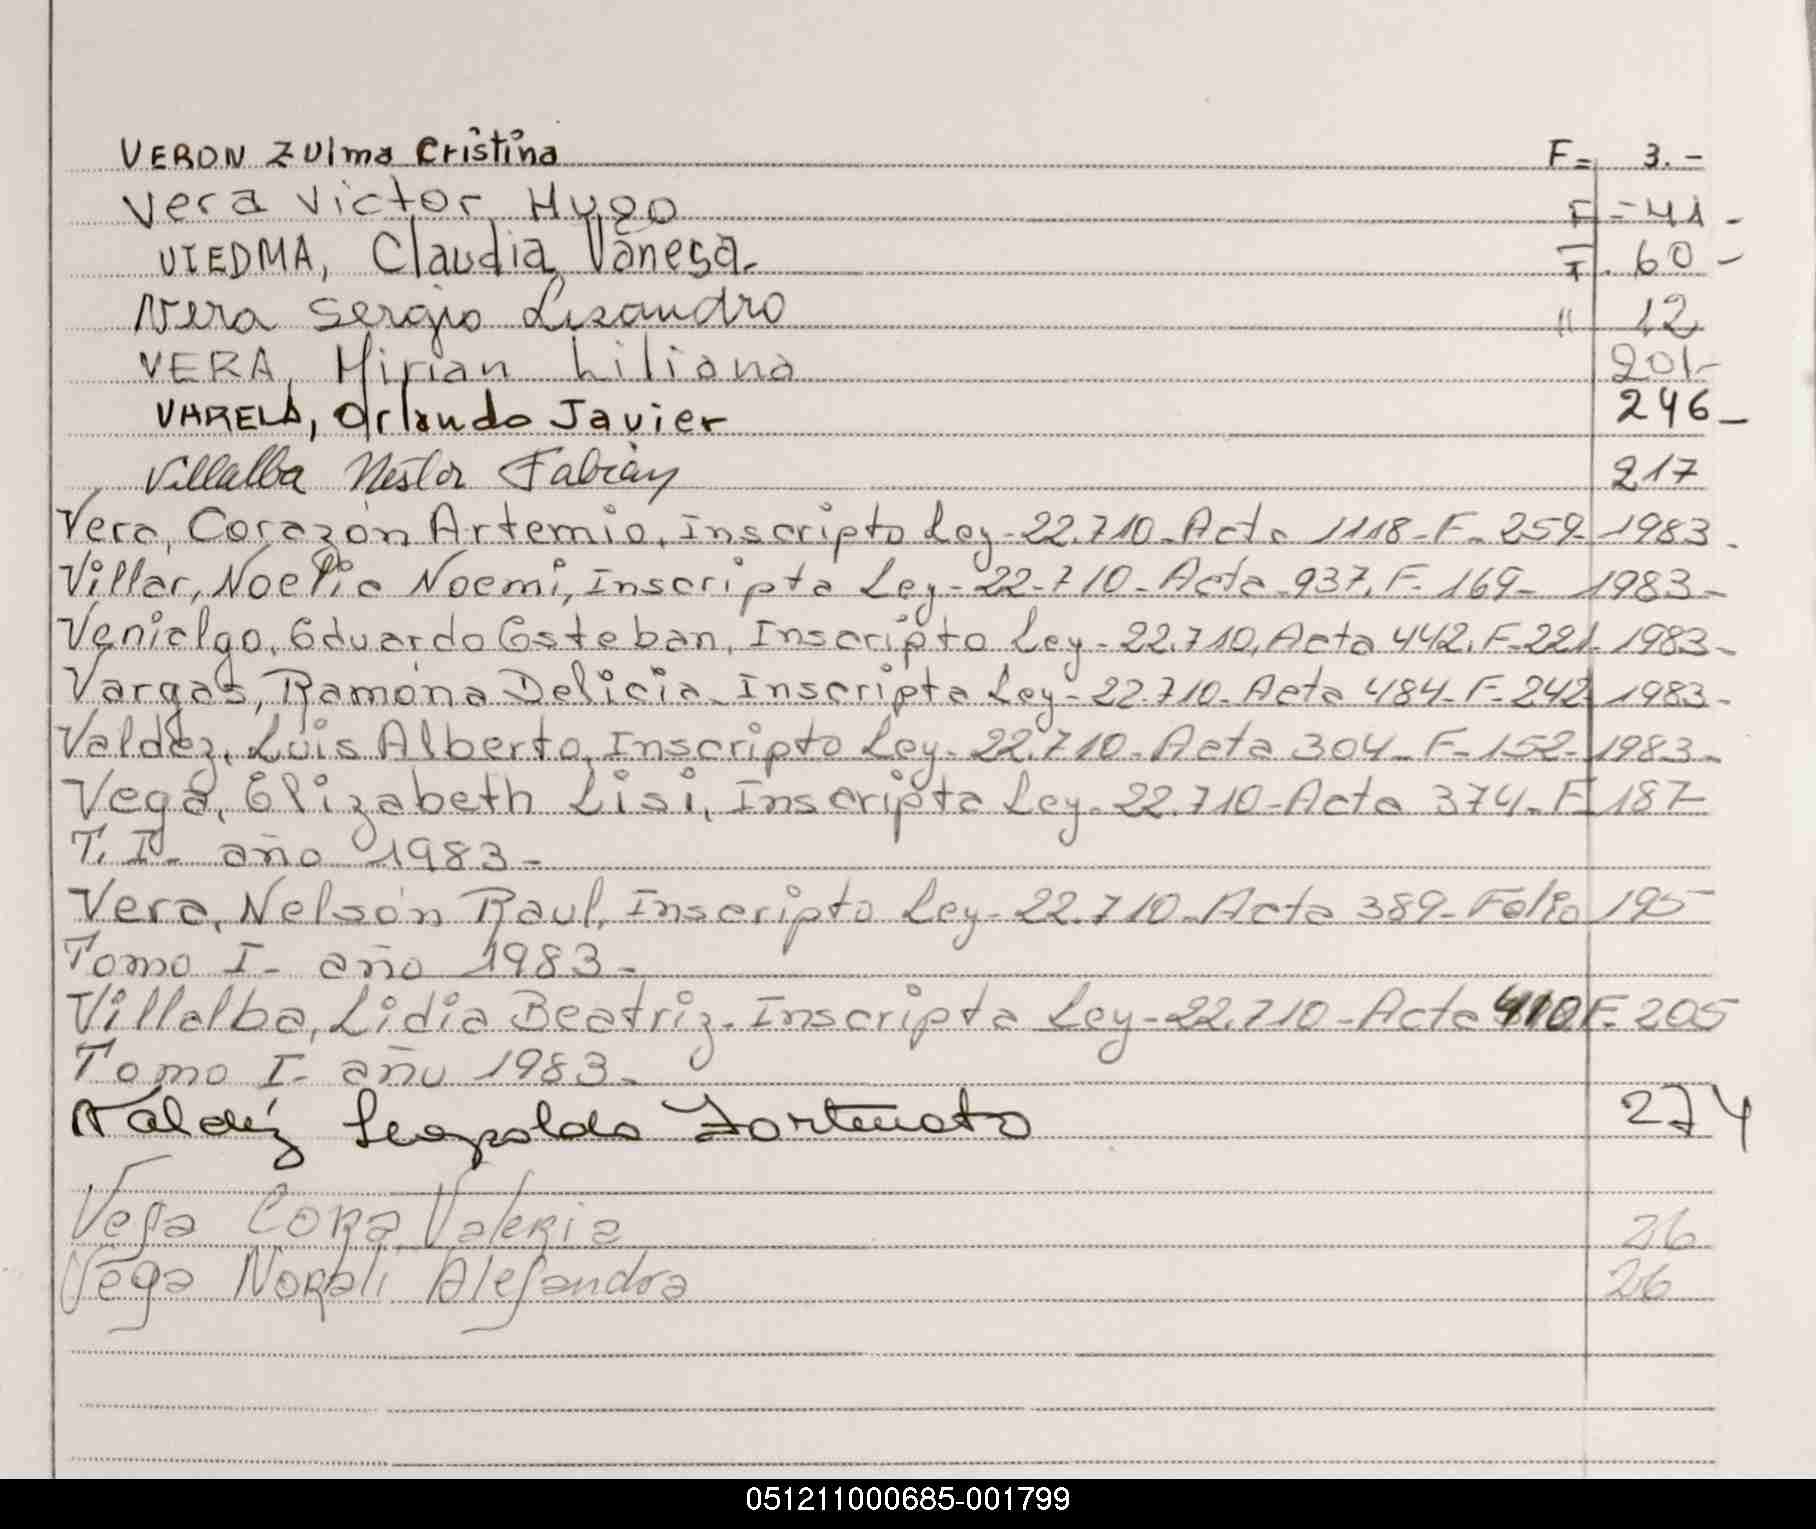 VERON Zulma Cristina F= 3.-
Vera Victor Hugo F=41-
VIEDMA, Claudia Vanesa. F. 60-
Vera Sergio Lisandro " 12
VERA, Mirian Liliana 201-
VARELA, Orlando Javier 246-
Villalba Nestor Fabian 217
Vera, Corazón Artemio, Inscripto Ley-22.710-Acta 1118-F-259-1983-
Villar, Noelia Noemi, Inscripta Ley-22-710-Acta-937. F-169-1983-
Venialgo, Eduardo Esteban, Inscripto Ley-22.710, Acta 442. F-221-1983-
Vargas, Ramona Delicia-Inscripta Ley-22.710-Acta 484-F-242-1983-
Valdéz, Luis Alberto, Inscripto Ley-22.710-Acta 304-F-152-1983-
Vega, Elizabeth Lisi, Inscripta Ley-22.710-Acta 374-F 187-
T. I- año 1983-
Vera, Nelson Raul, Inscripto Ley-22.710-Acta 389-Folio 195-
Tomo I- año 1983-
Villalba, Lidia Beatriz-Inscripta Ley-22.710-Acta 410 F-205
Tomo I- año 1983-
Valdéz Leopoldo Fortunato 274
Vega Cora Valeria 26
Vega Norali Alejandra 26
051211000685-001799